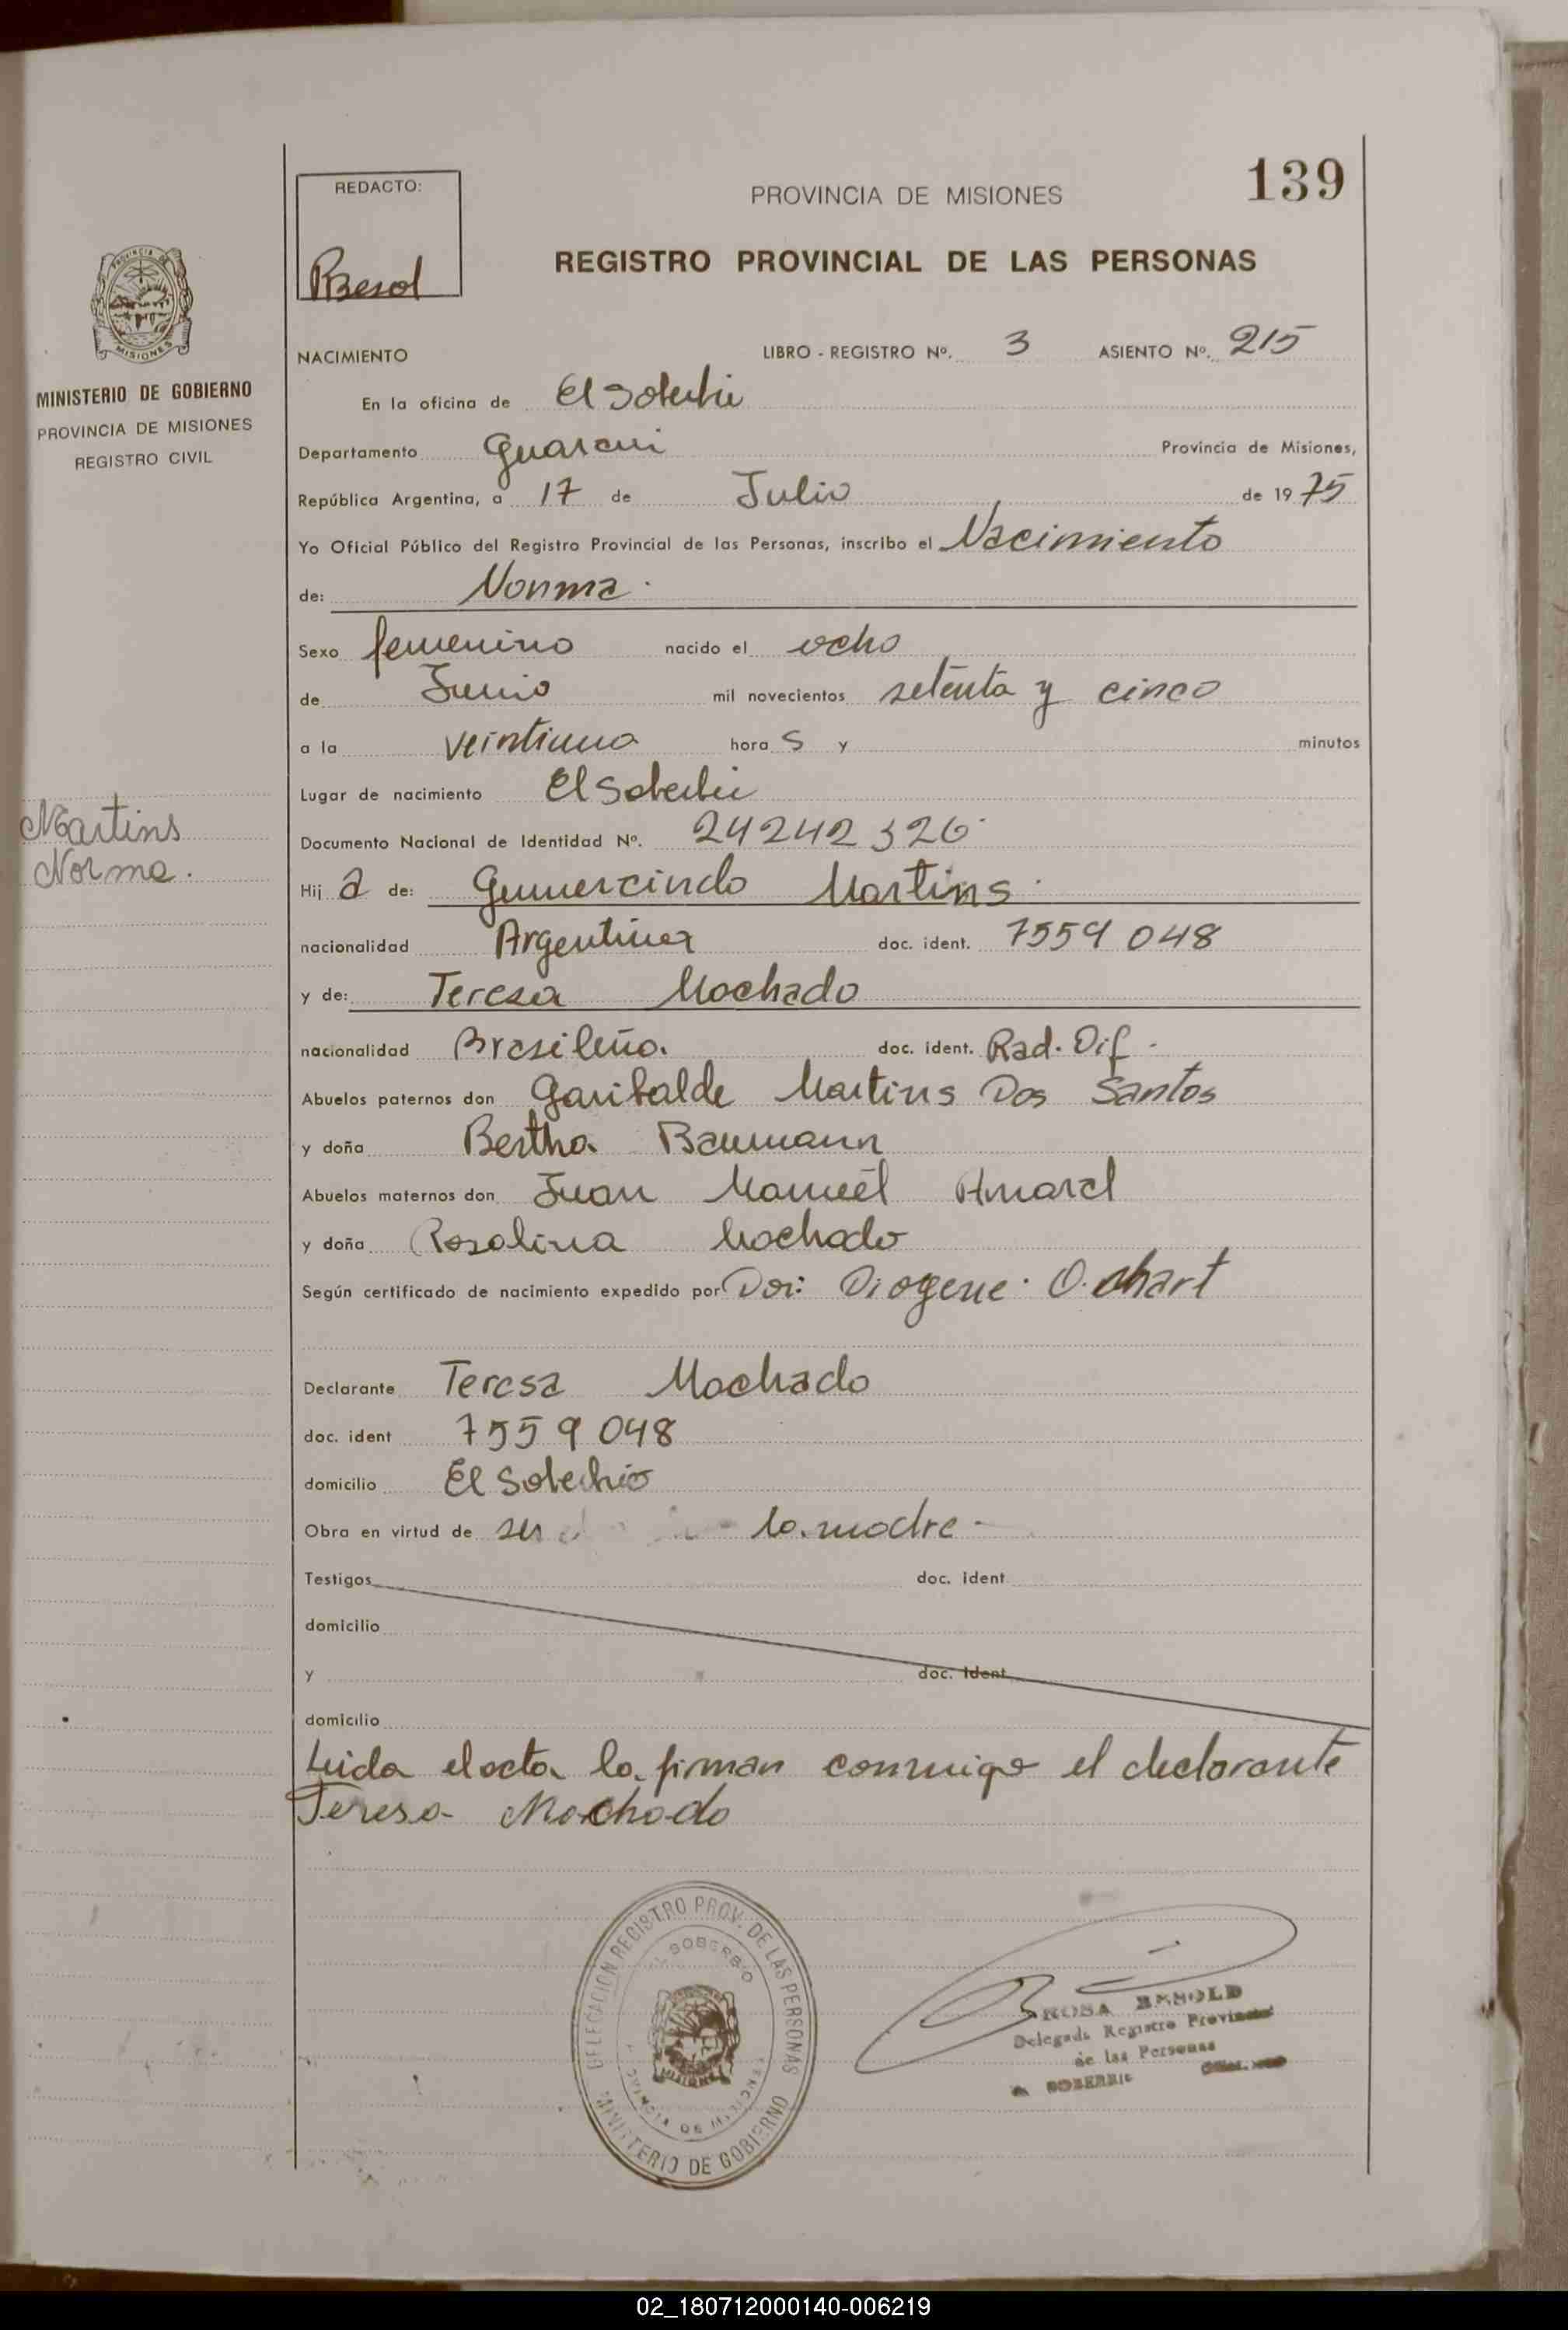 139
REDACTO:
Besol
PROVINCIA DE MISIONES
REGISTRO PROVINCIAL DE LAS PERSONAS
MISIONES
MINISTERIO DE GOBIERNO
PROVINCIA DE MISIONES
REGISTRO CIVIL
NACIMIENTO LIBRO - REGISTRO Nº. 3 ASIENTO Nº. 215
En la oficina de El Soberbio
Departamento Guarani Provincia de Misiones,
República Argentina, a 17 de Julio de 1975
Yo Oficial Público del Registro Provincial de las Personas, inscribo el Nacimiento
de: Norma
Sexo femenino nacido el ocho
de Junio mil novecientos setenta y cinco
a la veintiuna hora s y minutos
Lugar de nacimiento El Soberbio
Martins
Norma.
Documento Nacional de Identidad Nº. 24242326
Hij a de: Gumercindo Martins
nacionalidad Argentina doc. ident. 7559 048
y de: Teresa Machado
nacionalidad Brasileña doc. ident. Rad. Dif.
Abuelos paternos don Garibalde Martins Dos Santos
y doña Bertha Baumann
Abuelos maternos don Juan Manuel Amaral
y doña Rosalina Machado
Según certificado de nacimiento expedido por Dor: Diogene O.
Declarante Teresa Machado
doc. ident 7559 048
domicilio El Soberbio
Obra en virtud de ser la madre
Testigos doc. ident
domicilio
y doc. ident
domicilio
Leida el acta la firman conmigo el declarante
Teresa Machado
DELEGACION REGISTRO PROV. DE LAS PERSONAS
EL SOBERBIO
MISIONES
PROVINCIA DE MISIONES
MINISTERIO DE GOBIERNO
ROSA BESOLD
Delegada Registro Provincial
de las Personas
SOBERBIO
02_180712000140-006219